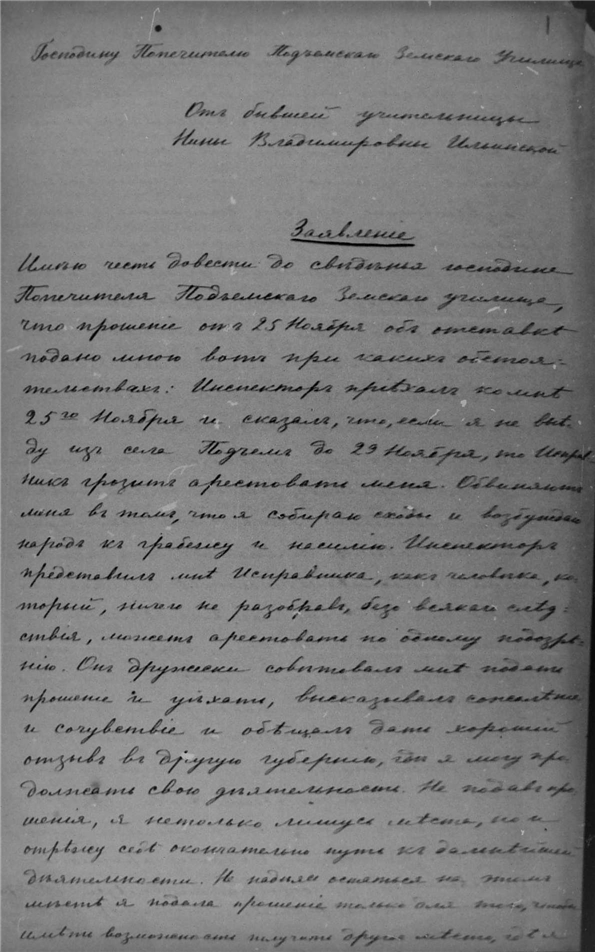 1
Господину Попечителю Подъемскаго Земскаго Училища
Отъ бывшей учительницы
Нины Владимировны Ильинской
Заявленіе
Имѣю честь довести до свѣдѣнья господине
Попечителя Подъемскаго Земскаго училища,
что прошеніе отъ 25 Ноября объ отставкѣ
подано мною вотъ при какихъ обстоя-
тельствахъ: Инспекторъ пріѣхалъ ко мнѣ
25го Ноября и сказалъ, что, если я не выѣ-
ду изъ села Подъемъ до 29 Ноября, то Исправ-
никъ грозитъ арестовать меня. Обвиняютъ
меня въ томъ, что я собираю сходы и возбуждаю
народъ къ грабежу и насилію. Инспекторъ
представилъ мнѣ Исправника, какъ человѣка, ко-
торый, ничего не разобравъ, безо всякаго слѣд-
ствія, можетъ арестовать по одному подозрѣ-
нію. Онъ дружески совѣтовалъ мнѣ подать
прошеніе и уѣхать, высказывалъ сожалѣніе
и сочувствіе и обѣщалъ дать хорошій
отзывъ въ другую губернію, гдѣ я могу про-
должать свою дѣятельность. Не подавъ про-
шенія, я нетолько лишусь мѣста, но и
отрѣжу себѣ окончательно путь къ дальнѣйшей
дѣятельности. Не надѣясь остаться на этомъ
мѣстѣ я подала прошеніе только для того, чтобы
имѣть возможность получить другое мѣсто, гдѣ я